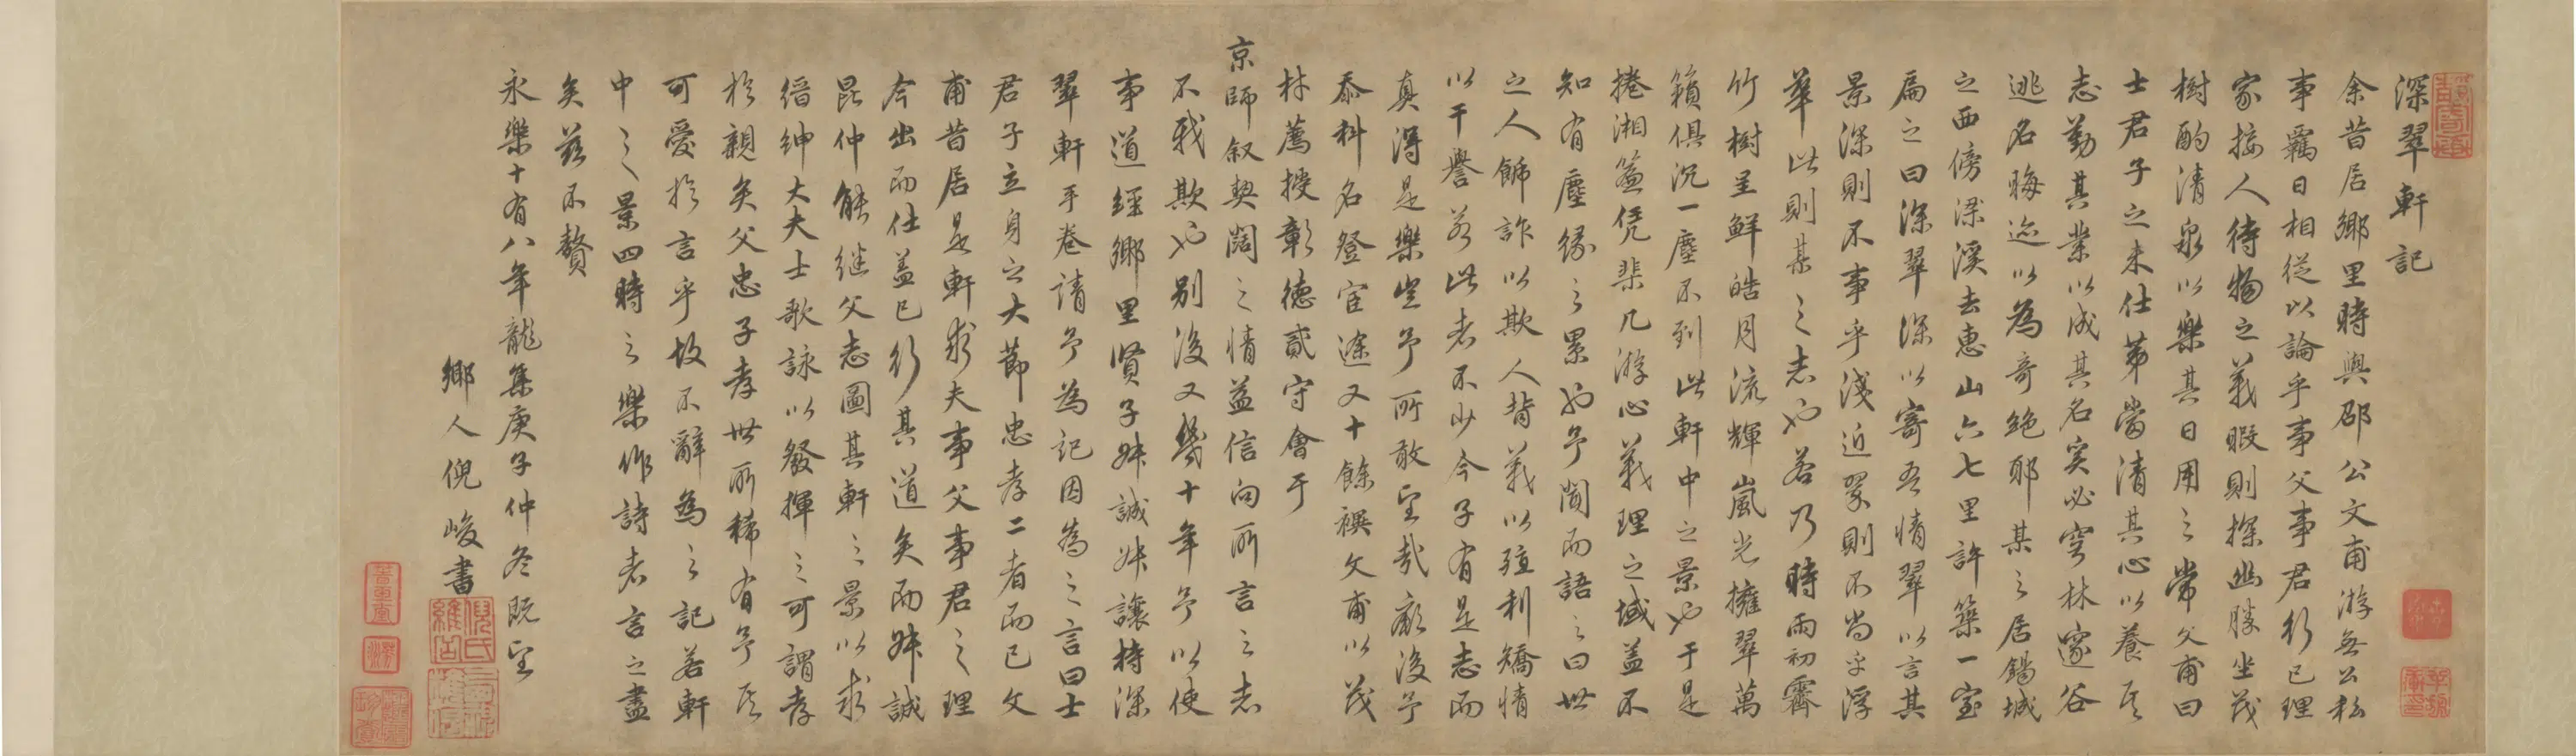 深翠軒記
余昔居鄉里時與邵公文甫游無公私
事羈日相從以論乎事父事君行已理
家接人待物之義暇則探幽勝坐茂
樹酌清泉以樂其日用之常文甫曰
士君子之未仕第當清其心以養其
志勤其業以成其名奚必穹林邃谷
逃名晦迹以為奇絶耶某之居錫城
之西傍梁溪去惠山六七里許築一室
扁之曰深翠深以寄吾情翠以言其
景深則不事乎淺近翠則不尚乎浮
華此則某之志也若乃時雨初霽
竹樹呈鮮皓月流輝嵐光擁翠萬
籟俱沉一塵不到此軒中之景也于是
捲湘簾凭棐几游心義理之域盖不
知有塵緣之累也予聞而語之曰世
之人飾詐以欺人背義以殖利矯情
以干譽若此者不少今子有是志而
真得是樂豈予所敢望哉厥後予
忝科名登宦途又十餘禩文甫以茂
材薦授彰德貳守會于
京師叙契闊之情益信向所言之志
不我欺也别後又幾十年予以使
事道經鄉里賢子昧誠昧讓持深
翠軒手卷請予為記因為之言曰士
君子立身之大節忠孝二者而已文
甫昔居是軒求夫事父事君之理
今出而仕盖已行其道矣而昧誠
昆仲能繼父志圖其軒之景以求
縉紳大夫士歌詠以發揮之可謂孝
於親矣父忠子孝世所稀有予其
可愛於言乎故不辭為之記若軒
中之景四時之樂作詩者言之盡
矣茲不贅
永樂十有八年龍集庚子仲冬既望
鄉人倪峻書
倪氏維嶽